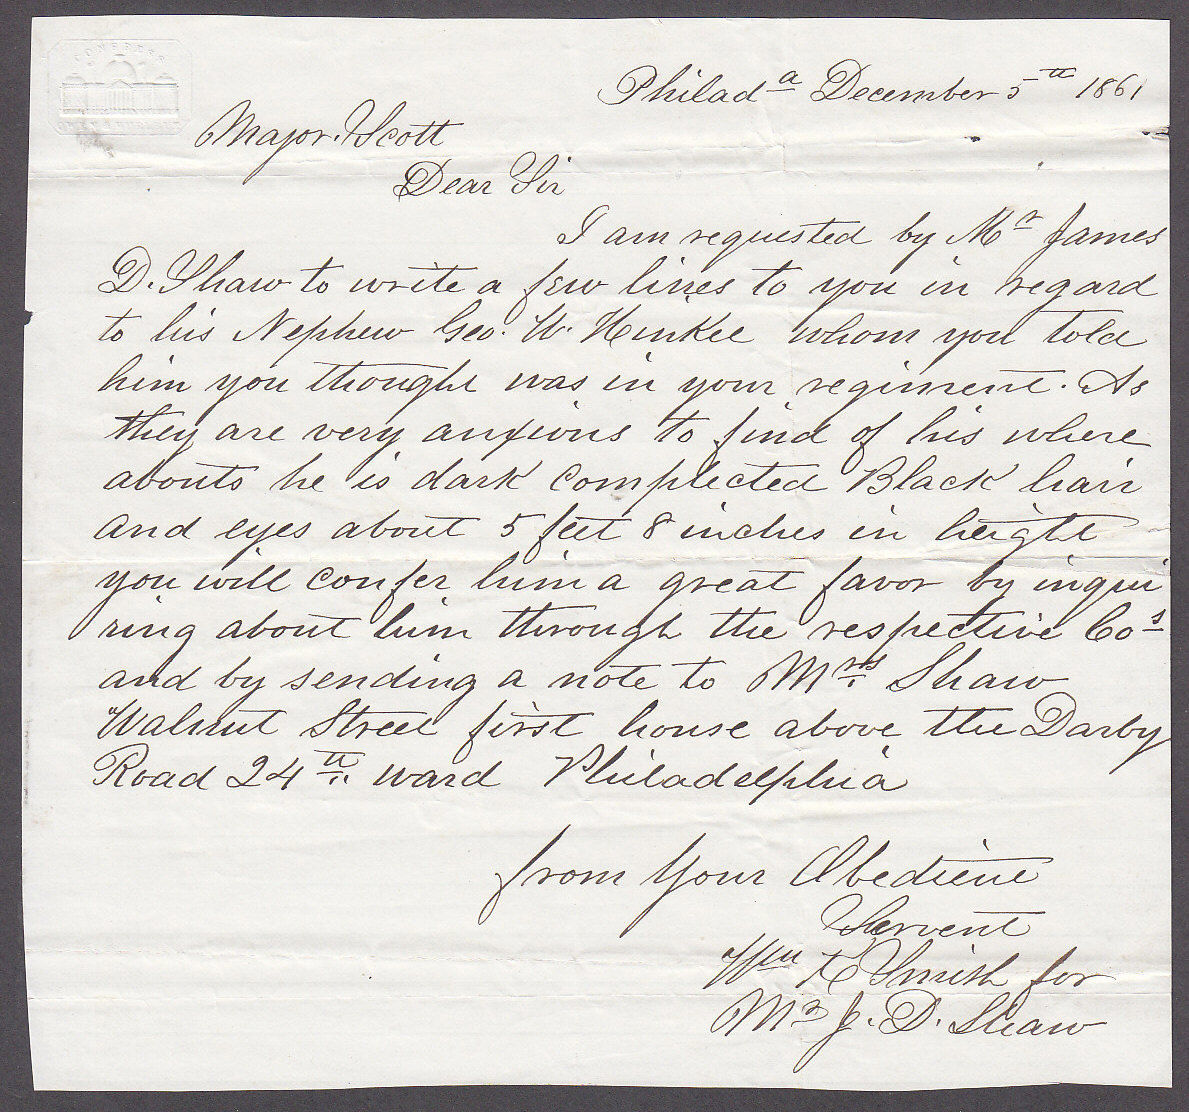 CONGRESS
Philada December 5th 1861
Major. Scott
Dear Sir
I am requested by Mr James
D. Shaw to write a few lines to you in regard
to his Nephew Geo. W. Hinkle whom you told
him you thought was in your regiment. As
they are very anxious to find of his where
abouts he is dark complected Black hair
and eyes about 5 feet 8 inches in height
you will confer him a great favor by inqui
ring about him through the respective Cos
and by sending a note to Mrs. Shaw
Walnut Street first house above the Darby
Road 24th. ward Philadelphia
from Your Obedient
Servent
Wm K Smith for
Mr J. D. Shaw